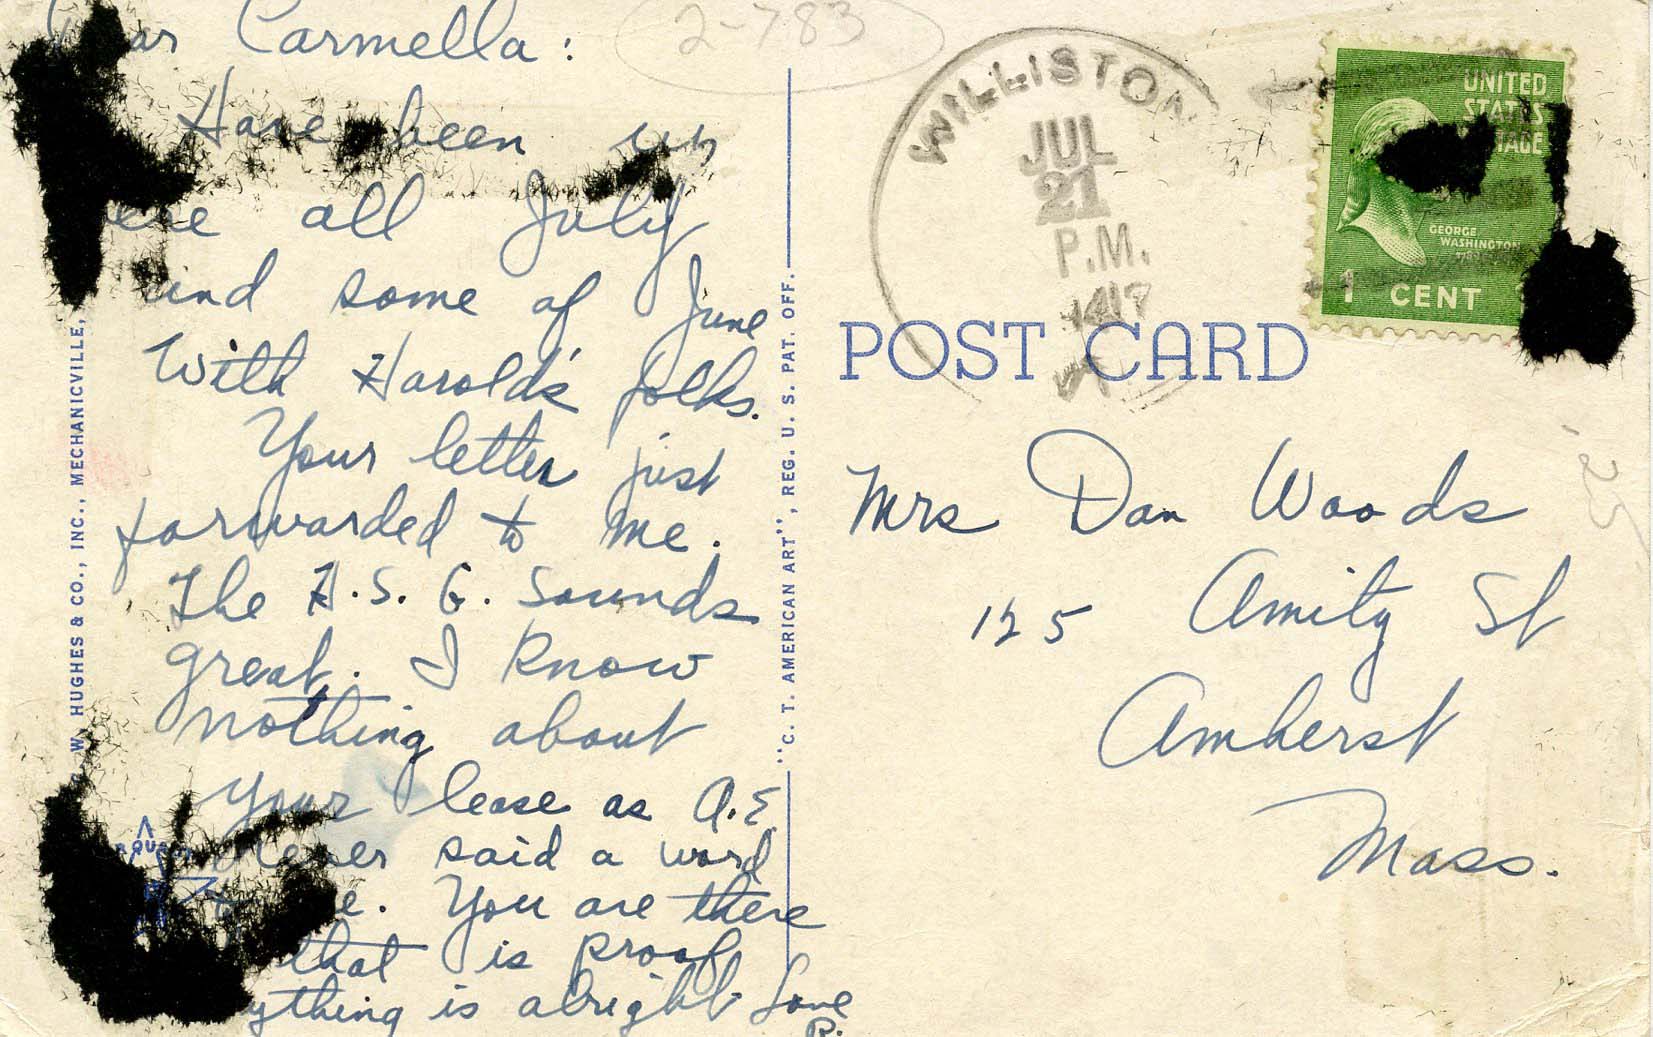 Carmella:
2-783
Have been up
all July
and some of June
With Harold's folks.
Your letter just
forwarded to me.
The H.S.G. Sounds
great. I Know
nothing about
your lease as A.E.
never said a word
You are there
that is proof
is alright Love
R.
W. HUGHES & CO., INC., MECHANICVILLE,
"C. T. AMERICAN ART", REG. U. S. PAT. OFF.
WILLISTON
JUL
21
P.M.
UNITED
STATES
GEORGE
WASHINGTON
1 CENT
POST CARD
Mrs Dan Woods
125 Amity St
Amherst
Mass.
25